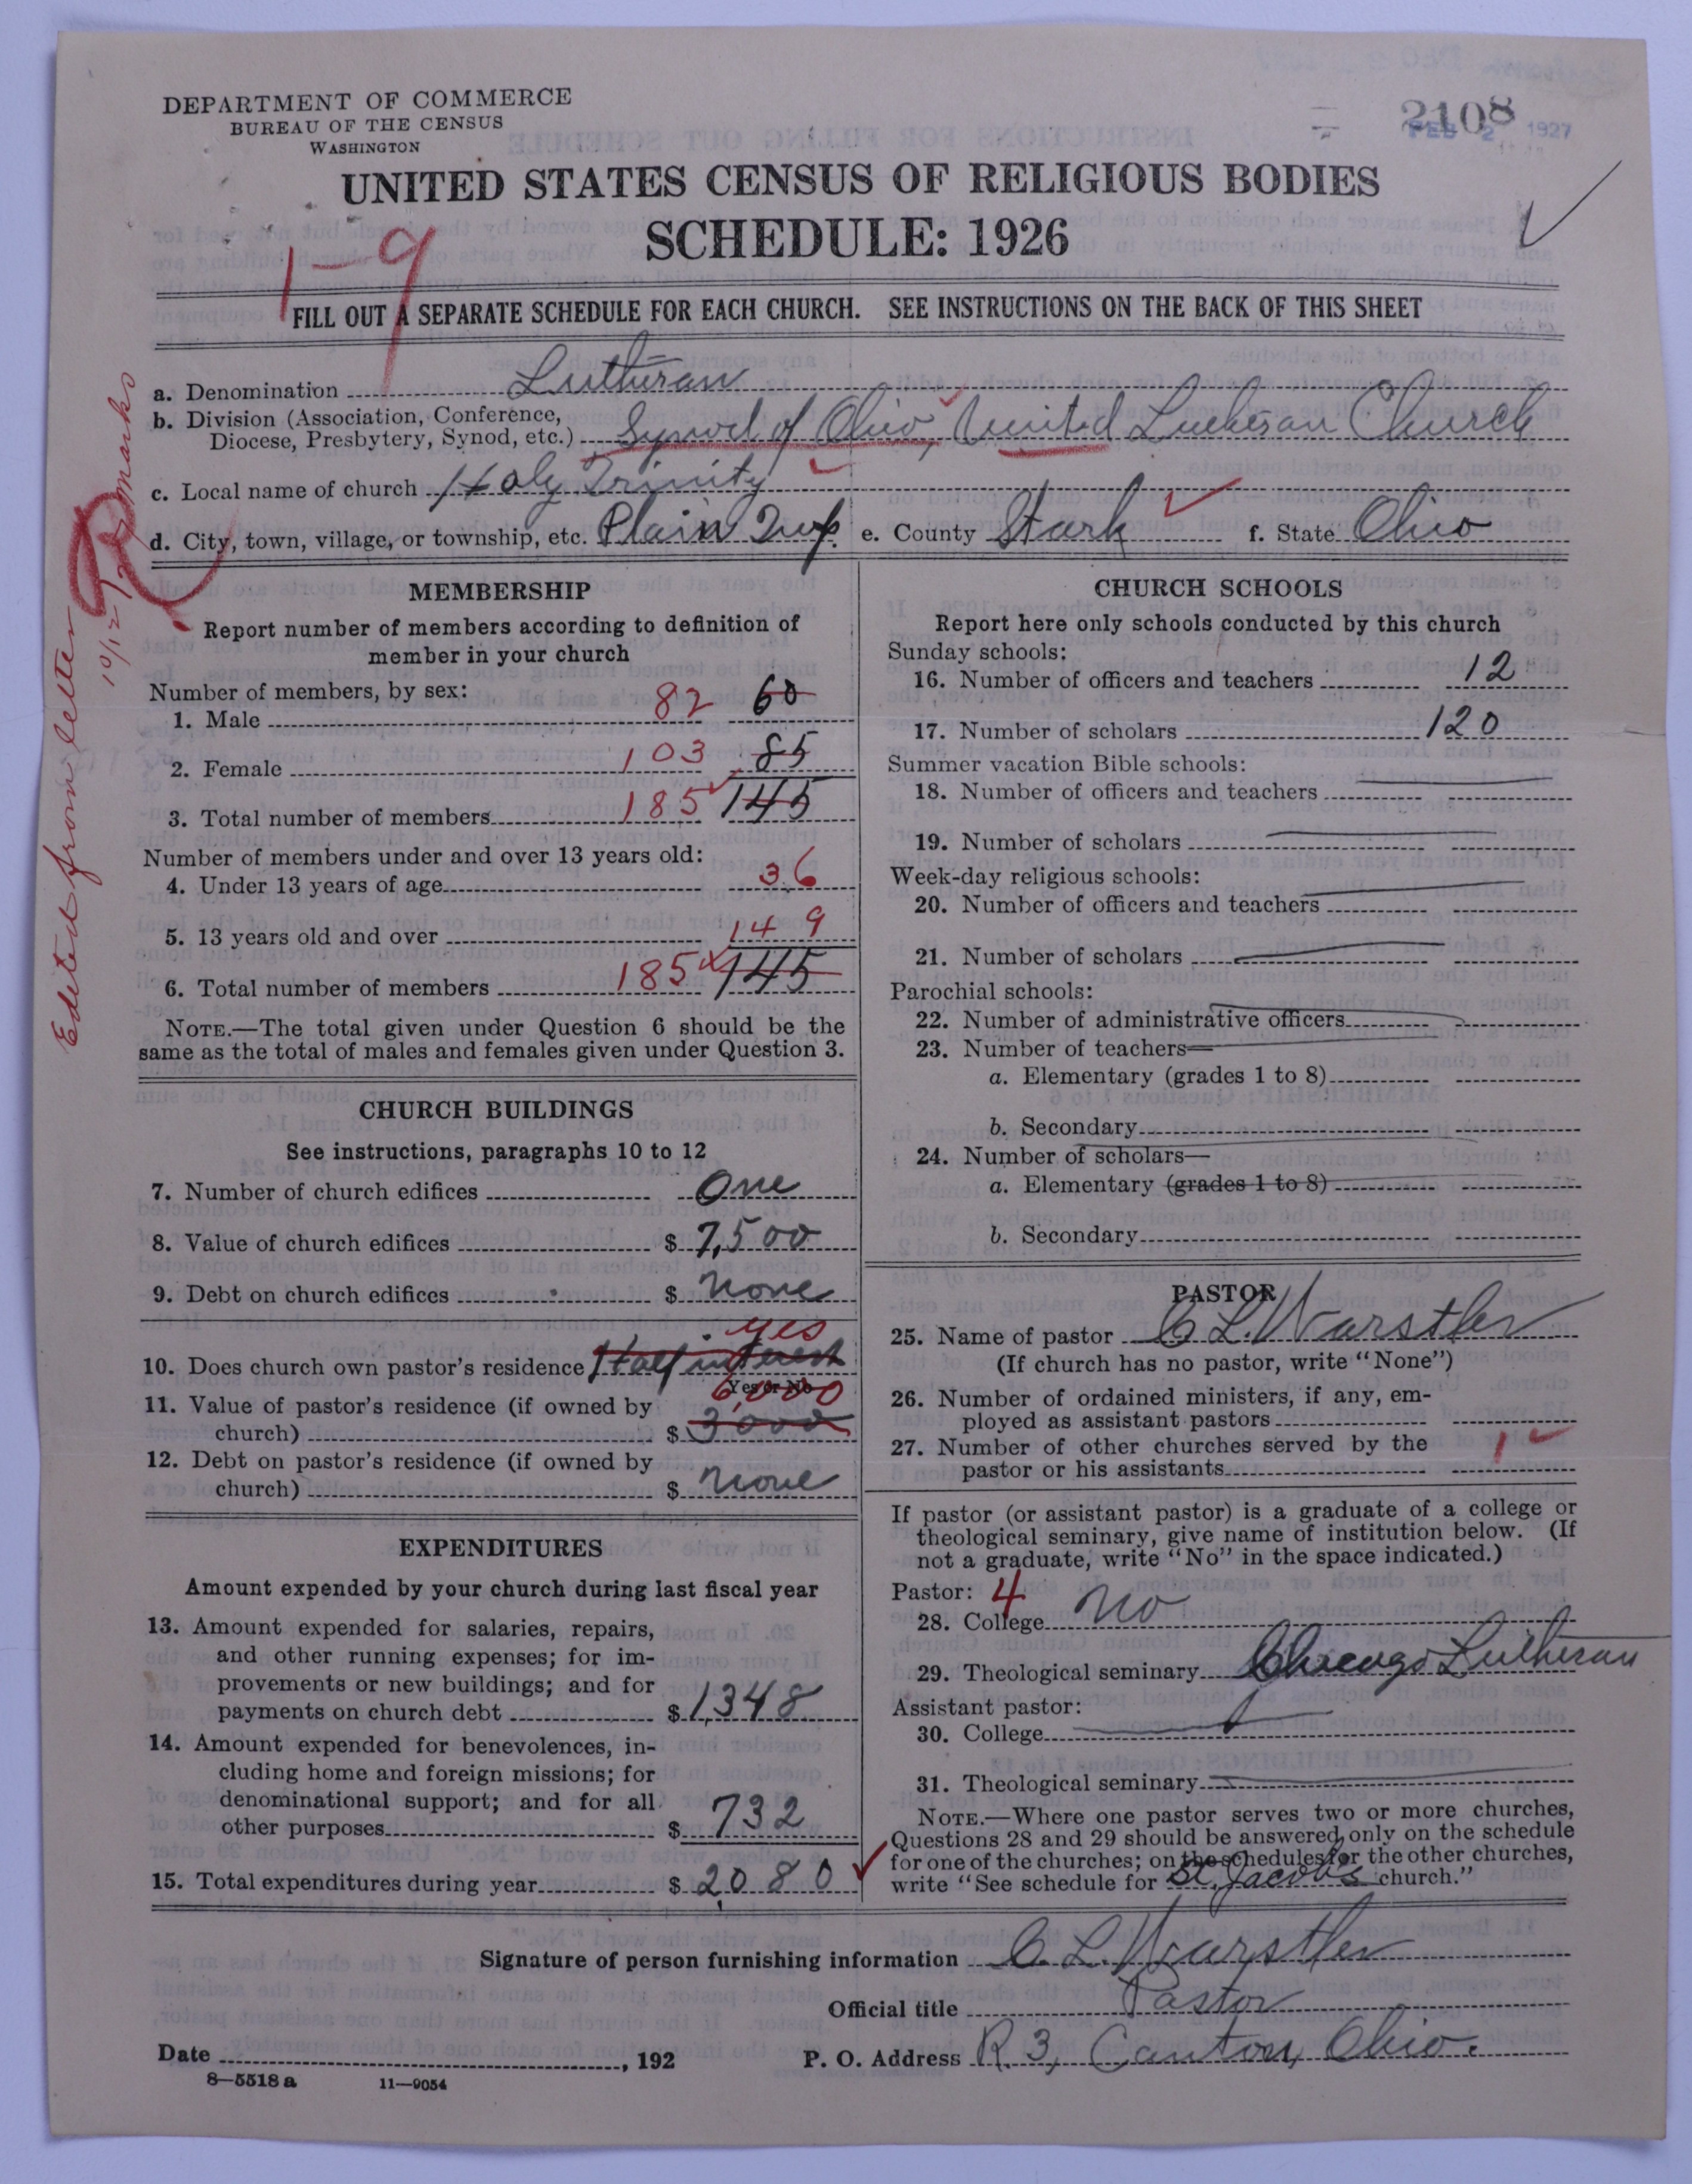 DEPARTMENT OF COMMERCE
BUREAU OF THE CENSUS
WASHINGTON
2108
FEB 2 1927
UNITED STATES CENSUS OF RELIGIOUS BODIES
SCHEDULE: 1926
1-9
FILL OUT A SEPARATE SCHEDULE FOR EACH CHURCH. SEE INSTRUCTIONS ON THE BACK OF THIS SHEET
a. Denomination Lutheran
b. Division (Association, Conference,
Diocese, Presbytery, Synod, etc.) Synod of Ohio, United Lutheran Church
c. Local name of church Holy Trinity
d. City, town, village, or township, etc. Plain Twp. e. County Stark f. State Ohio
Edited from letter
Remarks
MEMBERSHIP
Report number of members according to definition of
member in your church
Number of members, by sex:
1. Male 82 60
2. Female 103 85
3. Total number of members 185 145
Number of members under and over 13 years old:
4. Under 13 years of age 36
5. 13 years old and over 149
6. Total number of members 185 145
NOTE.—The total given under Question 6 should be the
same as the total of males and females given under Question 3.
CHURCH BUILDINGS
See instructions, paragraphs 10 to 12
7. Number of church edifices One
8. Value of church edifices $ 7,500
9. Debt on church edifices $ None
yes
10. Does church own pastor's residence Half interest
Yes or No
6,000
11. Value of pastor's residence (if owned by
church) $ 3000
12. Debt on pastor's residence (if owned by
church) $ None
EXPENDITURES
Amount expended by your church during last fiscal year
13. Amount expended for salaries, repairs,
and other running expenses; for im-
provements or new buildings; and for
payments on church debt $ 1,348
14. Amount expended for benevolences, in-
cluding home and foreign missions; for
denominational support; and for all
other purposes $ 732
15. Total expenditures during year $ 2,080
CHURCH SCHOOLS
Report here only schools conducted by this church
Sunday schools:
16. Number of officers and teachers 12
17. Number of scholars 120
Summer vacation Bible schools:
18. Number of officers and teachers
19. Number of scholars
Week-day religious schools:
20. Number of officers and teachers
21. Number of scholars
Parochial schools:
22. Number of administrative officers
23. Number of teachers—
a. Elementary (grades 1 to 8)
b. Secondary
24. Number of scholars—
a. Elementary (grades 1 to 8)
b. Secondary
PASTOR
25. Name of pastor C L. Warstler
(If church has no pastor, write "None")
26. Number of ordained ministers, if any, em-
ployed as assistant pastors
27. Number of other churches served by the 1
pastor or his assistants
If pastor (or assistant pastor) is a graduate of a college or
theological seminary, give name of institution below. (If
not a graduate, write "No" in the space indicated.)
Pastor: 4
28. College No
29. Theological seminary Chicago Lutheran
Assistant pastor:
30. College
31. Theological seminary
NOTE.—Where one pastor serves two or more churches,
Questions 28 and 29 should be answered only on the schedule
for one of the churches; on the schedules for the other churches,
write "See schedule for St. Jacob's church."
Signature of person furnishing information C. L. Warstler
Official title Pastor
Date , 192 P. O. Address R. 3, Canton, Ohio.
8—5518 a 11—9054